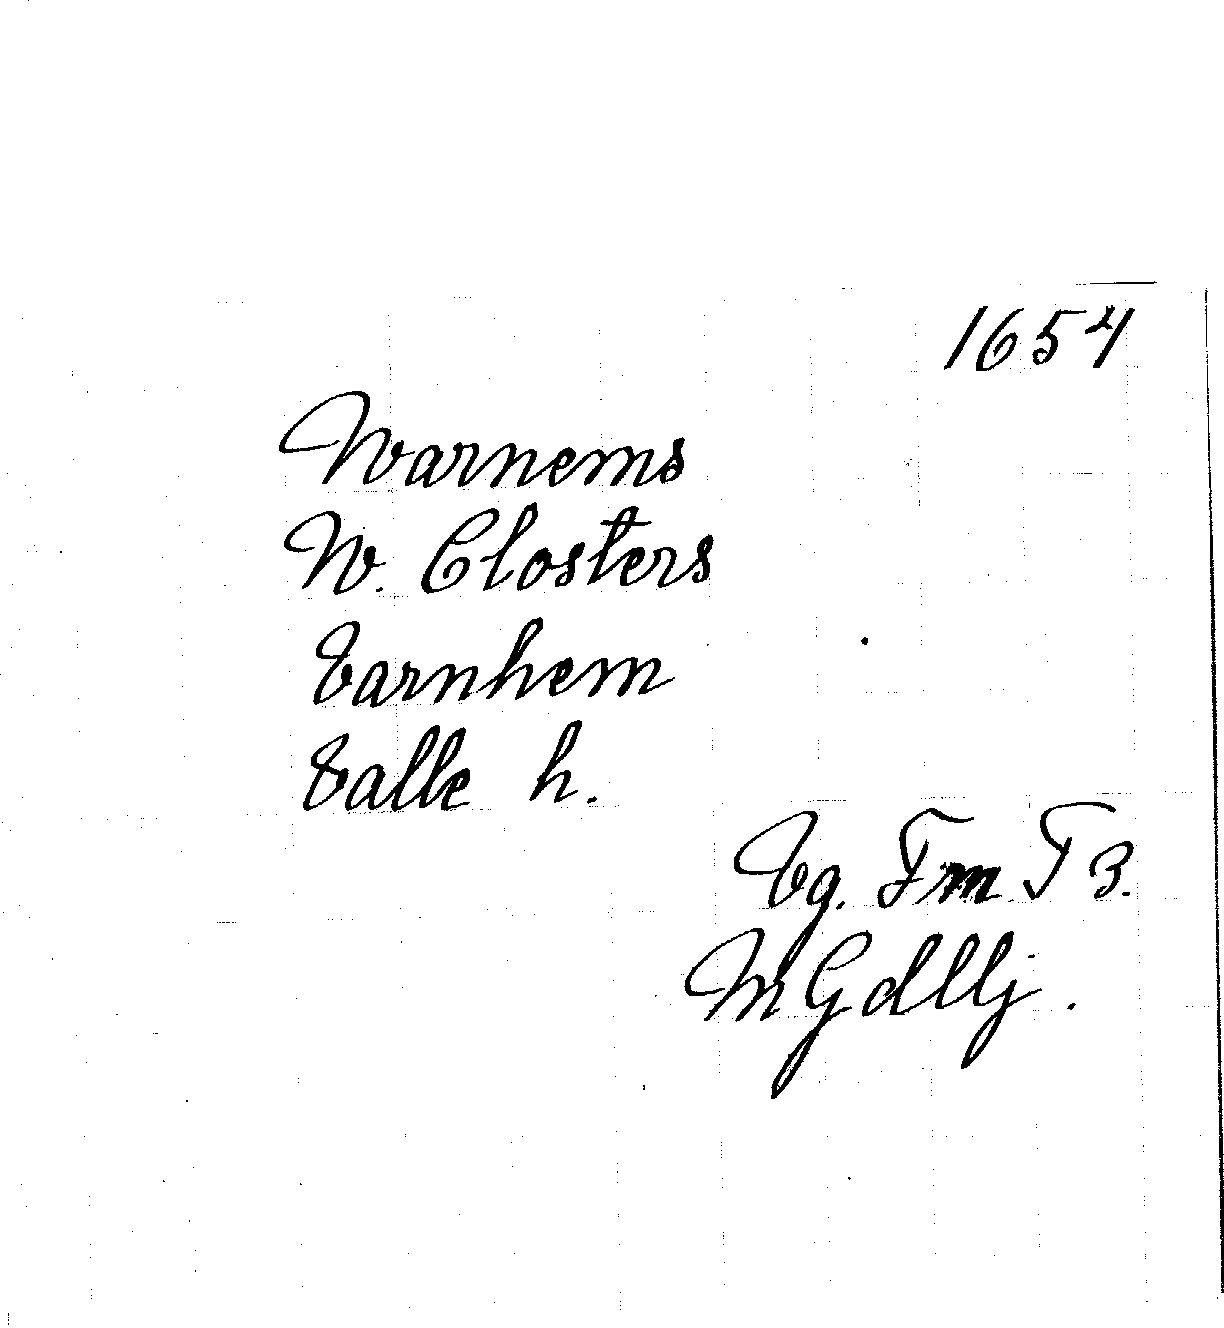 1654
Warnems
W. Closters
Varnhem
Valle h.
Vg. Fm T 3.